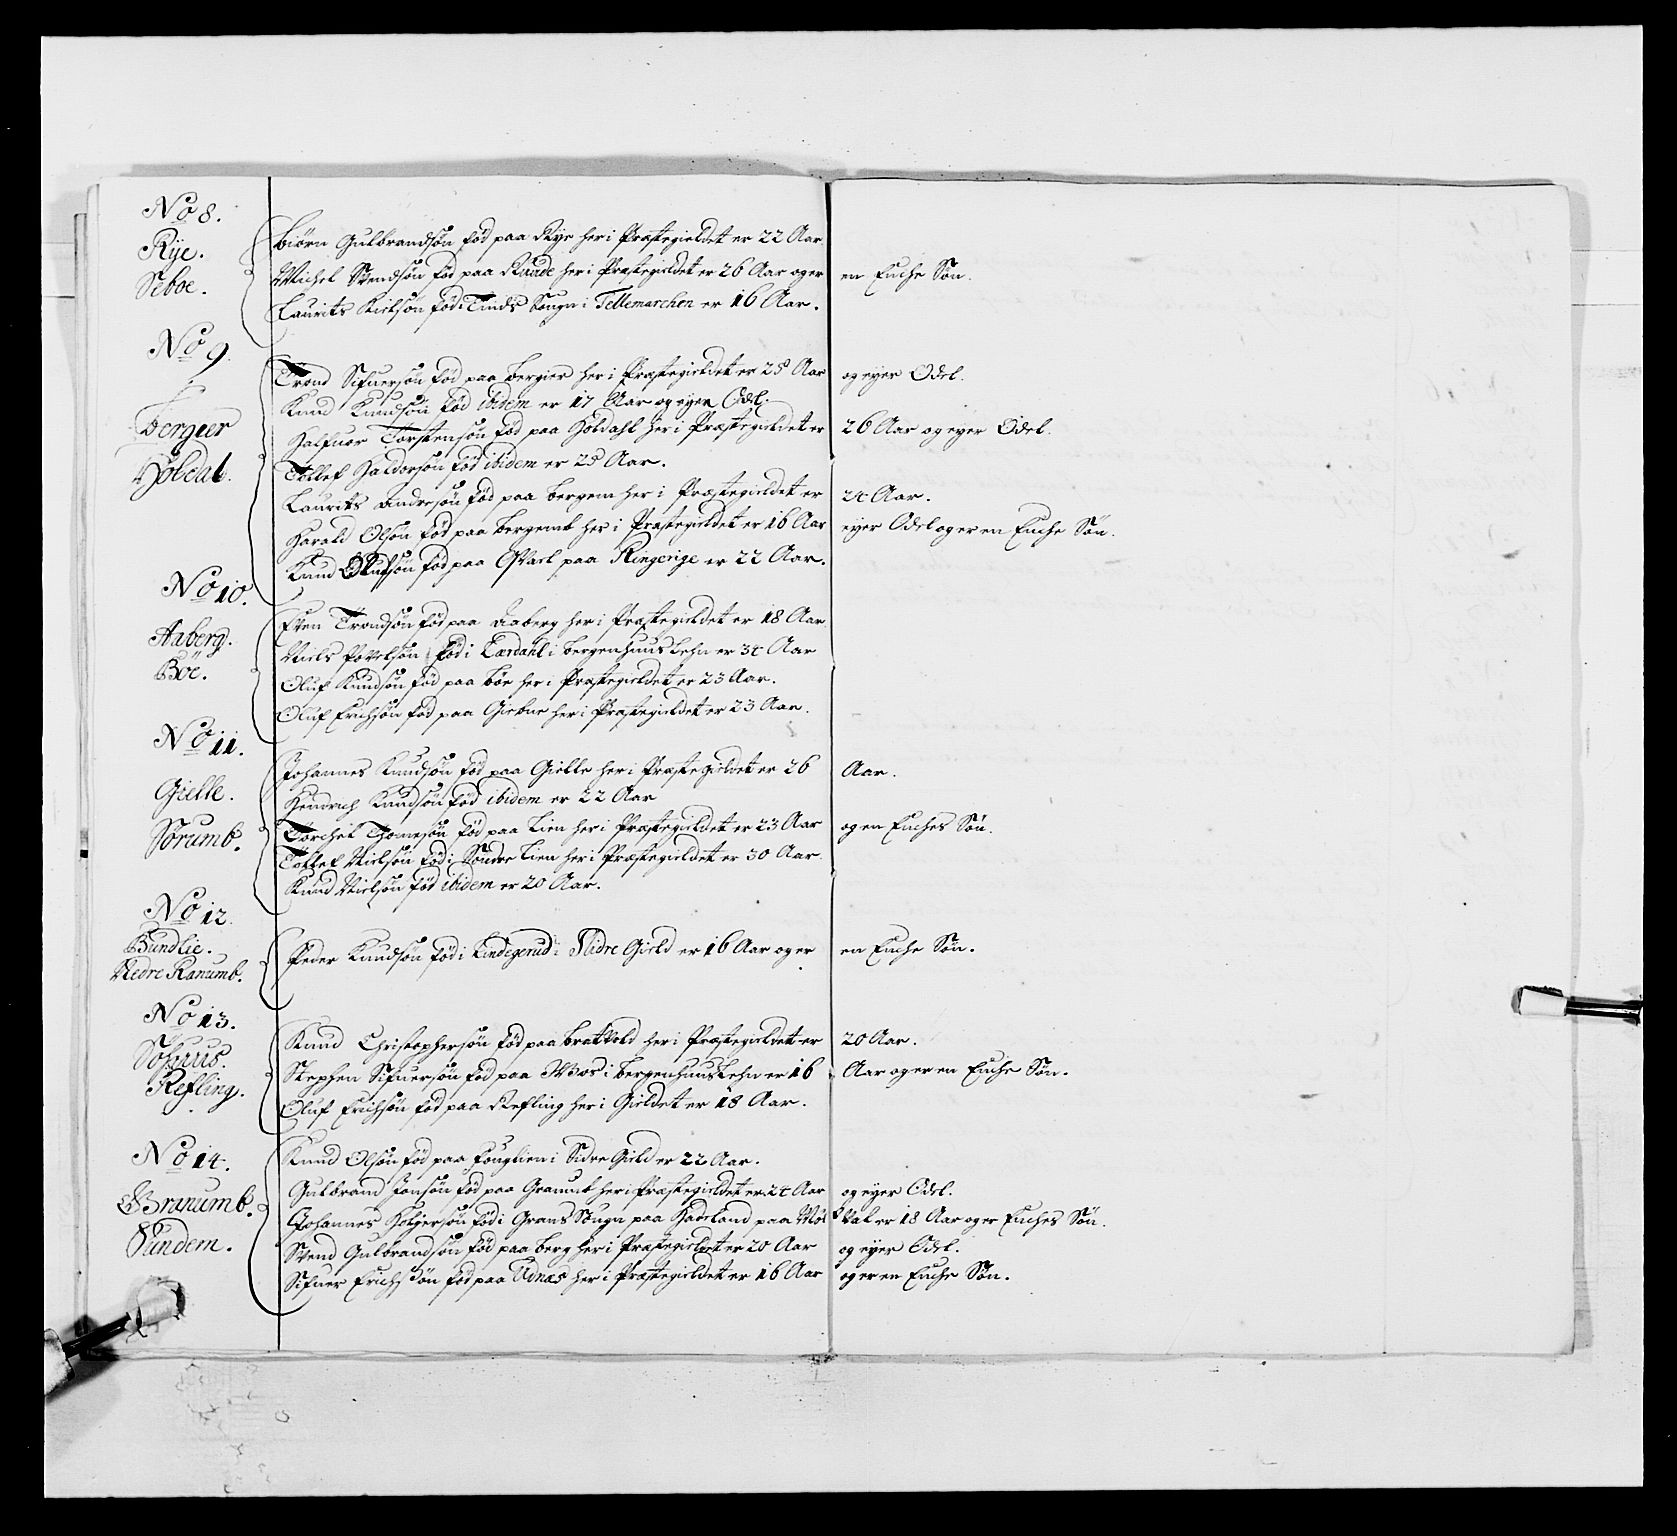 No 8.
Rye.
Seboe.
Biörn Gulbrandsön fød paa Rye her i Præstegieldet er 22 Aar
Michel Svendsön fød paa Ruude her i Præstegieldet er 26 Aar og er en Enche Søn.
Laurits Kielsön fød i Tinds Sougn i Tellemarchen er 16 Aar.
No 9.
Bergier
Holdal.
Trond Sifuersön fød paa Bergier her i Præstegieldet er 25 Aar og eyer Odel.
Knud Knudsön fød ibidem er 17 Aar og eyer Odel.
Halfuor Torstensön fød paa Holdahl her i Præstegieldet er 26 Aar og eyer Odel.
Tollef Haldorsön fød ibidem er 25 Aar.
Laurits Andersön fød paa Bergem her i Præstegieldet er 24 Aar.
Harald Olsön fød paa Bergemb her i Præstegieldet er 16 Aar eyer Odel og er en Enche Søn.
Knud Olufsön fød paa Qvarl paa Ringerige er 22 Aar.
No 10.
Aaberg.
Böe.
Even Trondsön fød paa Aaberg her i Præstegieldet er 18 Aar
Niels Povelsön fød i Lærdahl i Bergenhuus Lehn er 34 Aar
Oluf Knudsön fød paa Böe her i Præstegieldet er 23 Aar.
Oluf Erichsön fød paa Giebne her i Præstegieldet er 23 Aar.
No 11.
Gielle.
Sörumb.
Johannes Knudsön fød paa Gielle her i Præstegieldet er 26 Aar.
Hendrich Knudsön fød ibidem er 22 Aar
Torchel Thomesön fød paa Lien her i Præstegieldet er 23 Aar og en Enches Søn.
Tollef Nielsön fød i Söndre Lien her i Præstegieldet er 30 Aar.
Knud Nielsön fød ibidem er 20 Aar.
No 12.
Bundlie.
Nedre Ranumb.
Peder Knudsön fød i Lindegerud i Slidre Gield er 16 Aar og er en Enche Søn.
No 13.
Sohuus.
Refling.
Knud Christophersön fød paa Bratvold her i Præstegieldet er 20 Aar.
Stephen Sifuersön fød paa Wos i Bergenhuus Lehn er 16 Aar og er en Enche Søn.
Oluf Erichsön fød paa Refling her i Gieldet er 18 Aar.
No 14.
Granumb.
Sundem.
Knud Olsön fød paa Fouglien i Sidre Gield er 22 Aar.
Gulbrand Jonsön fød paa Granumb her i Præstegieldet er 24 Aar og eyer Odel.
Johannes Holgersön fød i Grans Sougn paa Hadeland paa Møl Val er 18 Aar og er Enches Søn.
Svend Gulbrandsön fød paa Berg her i Præstegieldet er 20 Aar og eyer Odel.
Sifuer Erichsön fød paa Udnæs her i Præstegieldet er 16 Aar og er en Enche Søn.